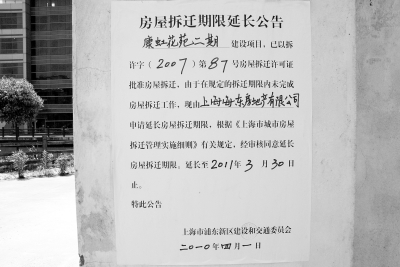 房屋拆迁期限延长公告
康虹花苑二期 建设项目，已以拆
许字（2007）第87号房屋拆迁许可证
批准房屋拆迁，由于在规定的拆迁期限内未完成
房屋拆迁工作，现由上海海东房地产有限公司
申请延长房屋拆迁期限，根据《上海市城市房屋
拆迁管理实施细则》有关规定，经审核同意延长
房屋拆迁期限。延长至2011年3月30日
止。
特此公告
上海市浦东新区建设和交通委员会
二〇一〇年四月一日